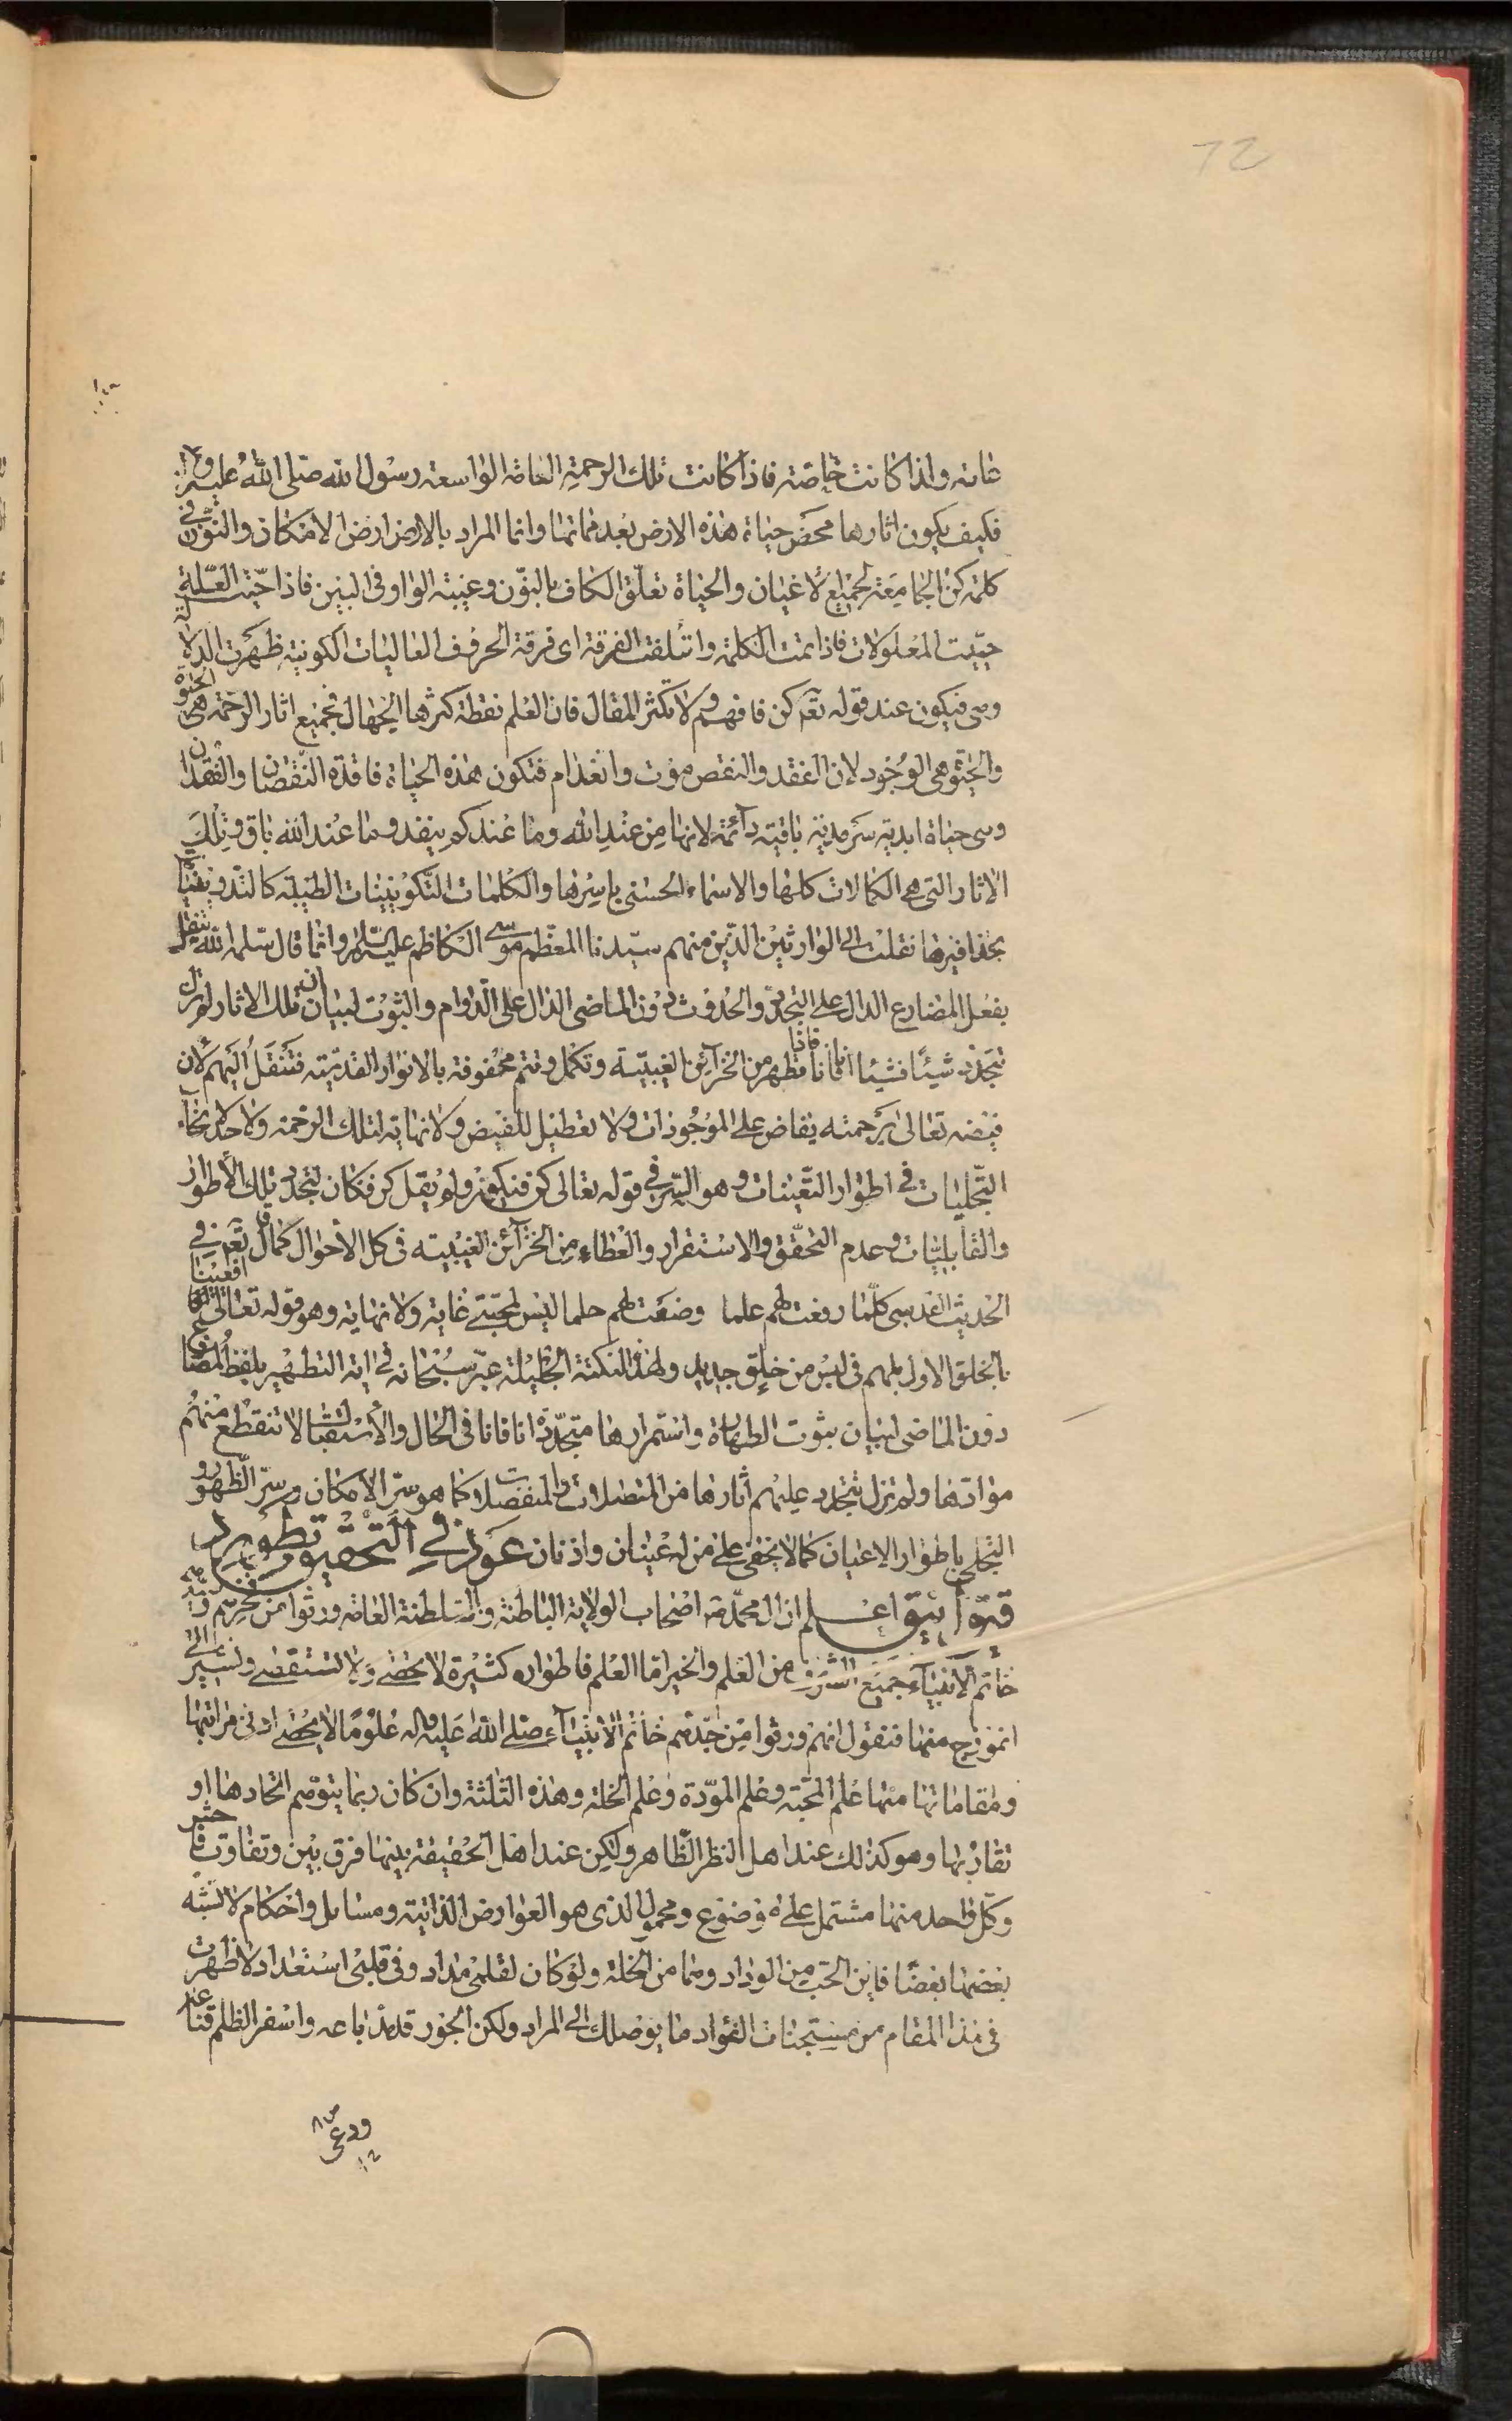 72
عامة واذا كانت خاصة فاذا كانت تلك الرحمة العامة الواسعة رسول الله صلى الله عليه و
فكيف يكون اثارها محض حياة هذه الارض بعد مماتها وانما المراد بالارض ارض الامكان والنون في
كلمة كن الجامعة لجميع الاعيان والحياة تعلق الكاف بالنون وغيبة الواو في البين فاذا حييت العلة
حييت المعلولات فاذا تمت الكلمة وائتلفت الفرقة اى فرقة الحروف العاليات الكونية ظهرت الدلالة
وهى فيكون عند قوله تعالى كن فافهم ولا تكثر المقال فان العلم نقطة كثرها الجهال فجميع اثار الرحمة هى الحيوة
والحيوة هى الوجود لان الفقد والنقص موت وانعدام فتكون هذه الحياة فاقدة النقصان والفقدان
وهى حياة ابدية سرمدية باقية دائمة لانها من عند الله وما عندكم ينفد وما عند الله باق وتلك
الاثار التى هى الكمالات كلها والاسماء الحسنى باسرها والكلمات التكوينيات الطيبة كالتدوينيات
بحذافيرها نقلت الى الوارثين الذين منهم سيدنا المعظم موسى الكاظم عليه السلام وانما قال سلمه الله تنتقل
بفعل المضارع الدال على التجدد والحدوث دون الماضى الدال على الدوام والثبوت لبيان ان تلك الاثار لم تزل
تتجدد شيئا فشيئا انا فانا فاذا تظهر من الخزائن الغيبية وتكمل وتتم محفوفة بالانوار القدسية فتنقل اليهم لان
فيضه تعالى برحمته يفاض على الموجودات ولا تعطيل للفيض ولا نهاية لتلك الرحمة ولا حد لانحاء
التجليات في اطوار التعينات وهو السر في قوله تعالى كن فيكون ولم يقل كن فكان لتجدد تلك الأطوار
والقابليات وعدم التحقق والاستقرار والعطاء من الخزائن الغيبية في كل الأحوال كما قال تعالى في
الحديث القدسى كلما رفعت لهم علما وضعت لهم حلما ليس لمحبتى غاية ولا نهاية وهو قوله تعالى افعيينا
بالخلق الاول بل هم في لبس من خلق جديد ولهذه النكتة الجليلة عبر سبحانه في اية التطهير بلفظ المضارع
دون الماضى لبيان ثبوت الطهارة واستمرارها متجددة انا فانا في الحال والأستقبال لا تنقطع منهم
موادها ولم تزل تتجدد عليهم اثارها من المتصلات والمنفصلات كما هو سر الامكان وسر الظهور و
التجلى باطوار الاعيان كما لا يخفى على من له عينان واذنان عود في التحقيق وتطوير
اعلم ان ال محمد هم اصحاب الولاية الباطنة والسلطنة العامة ورثوا من
خاتم الأنبياء جميع الشرف من العلم والخير اما العلم فاطواره كثيرة لا تحصى ولا تستقصى ونشير الى
انموذج منها فنقول انهم ورثوا من جدهم خاتم الأنبياء صلى الله عليه واله علوما لا يحصى ادنى مراتبها
ومقاماتها منها علم المحبة وعلم المودة وعلم الخلة وهذه الثلثة وان كان ربما يتوهم اتحادها او
تقاربها وهو كذلك عند اهل النظر الظاهر ولكن عند اهل الحقيقة بينها فرق بين وتفاوت فاحش
وكل واحد منها مشتمل على موضوع ومحمول الذى هو العوارض الذاتية ومسائل واحكام لا تشبه
بعضها بعضا فاين الحب من الوداد وهما من الخلة ولو كان لقلمى مداد وفى قلبى استعداد لاظهرت
فى هذا المقام من مستجنات الفؤاد ما يوصلك الى المراد ولكن الجور قد مد باعه واسفر الظلم قناعه